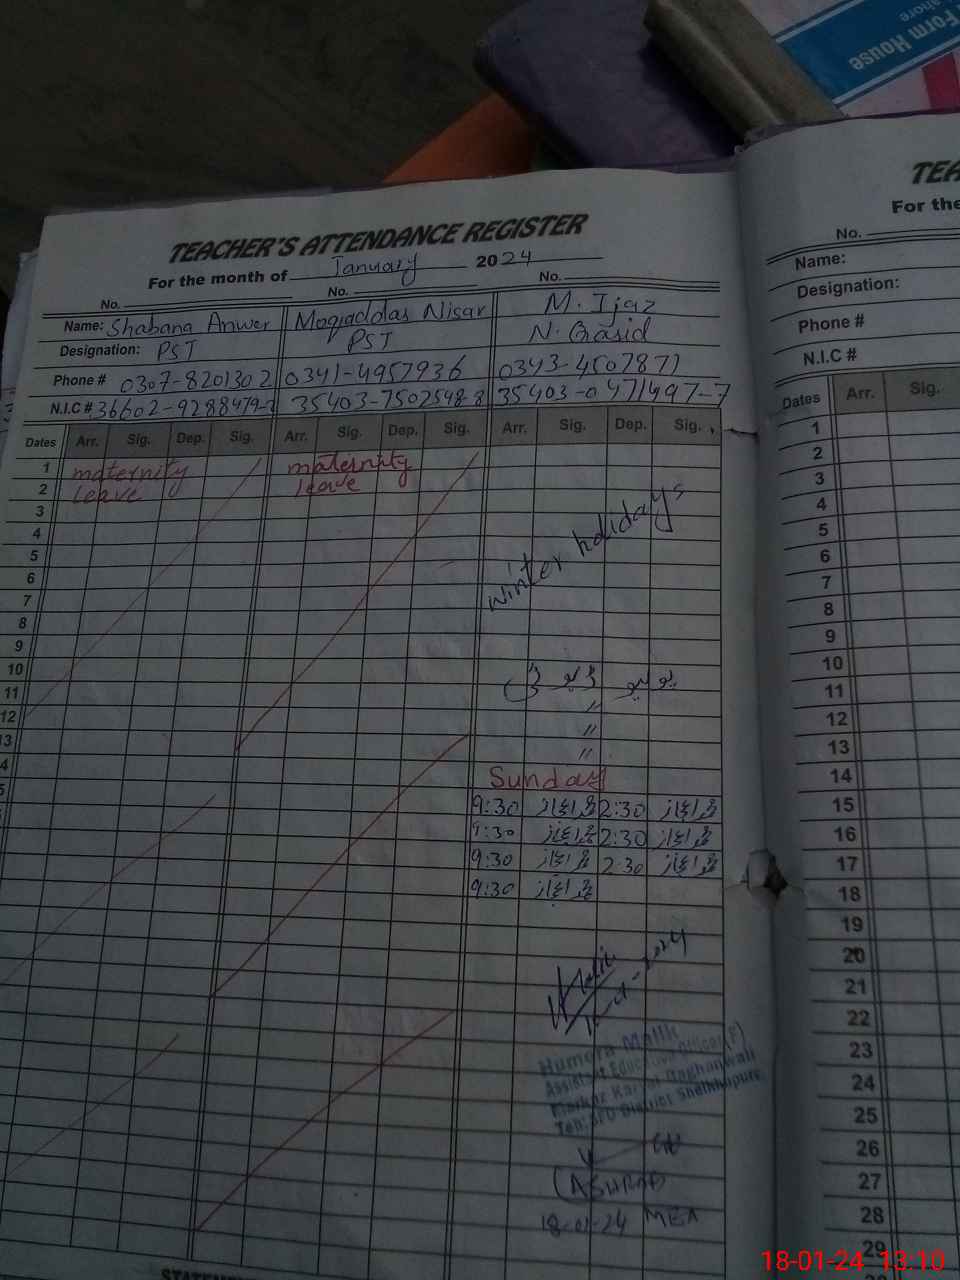 Form House
Lahore
TEACHER'S ATTENDANCE REGISTER
For the month of January 2024
No. No. No.
Name: Shabana Anwer Moqaddas Nisar M. Ijaz
Designation: PST PST N. Qasid
Phone # 0307-8201302 0341-4957936 0343-4507871
N.I.C # 36602-9288479- 35403-7502548-8 35403-0471497-7
Dates Arr. Sig. Dep. Sig. Arr. Sig. Dep. Sig. Arr. Sig. Dep. Sig.
1 maternity maternity
2 leave leave
3
4
5
6
7
winter holidays
8
9
10
11 پولیو ڈیوٹی
12 "
13 "
"
Sunday
9:30 محمد اعجاز 2:30 محمد اعجاز
9:30 محمد اعجاز 2:30 محمد اعجاز
9:30 محمد اعجاز 2:30 محمد اعجاز
9:30 محمد اعجاز
Humera Malik
Assistant Education Officer (F)
Markaz
District Sheikhupura
(ASHRAF)
18-01-24 MEA
TEA
For the
No.
Name:
Designation:
Phone #
N.I.C #
Dates Arr. Sig.
1
2
3
4
5
6
7
8
9
10
11
12
13
14
15
16
17
18
19
20
21
22
23
24
25
26
27
28
29
18-01-24 13:10